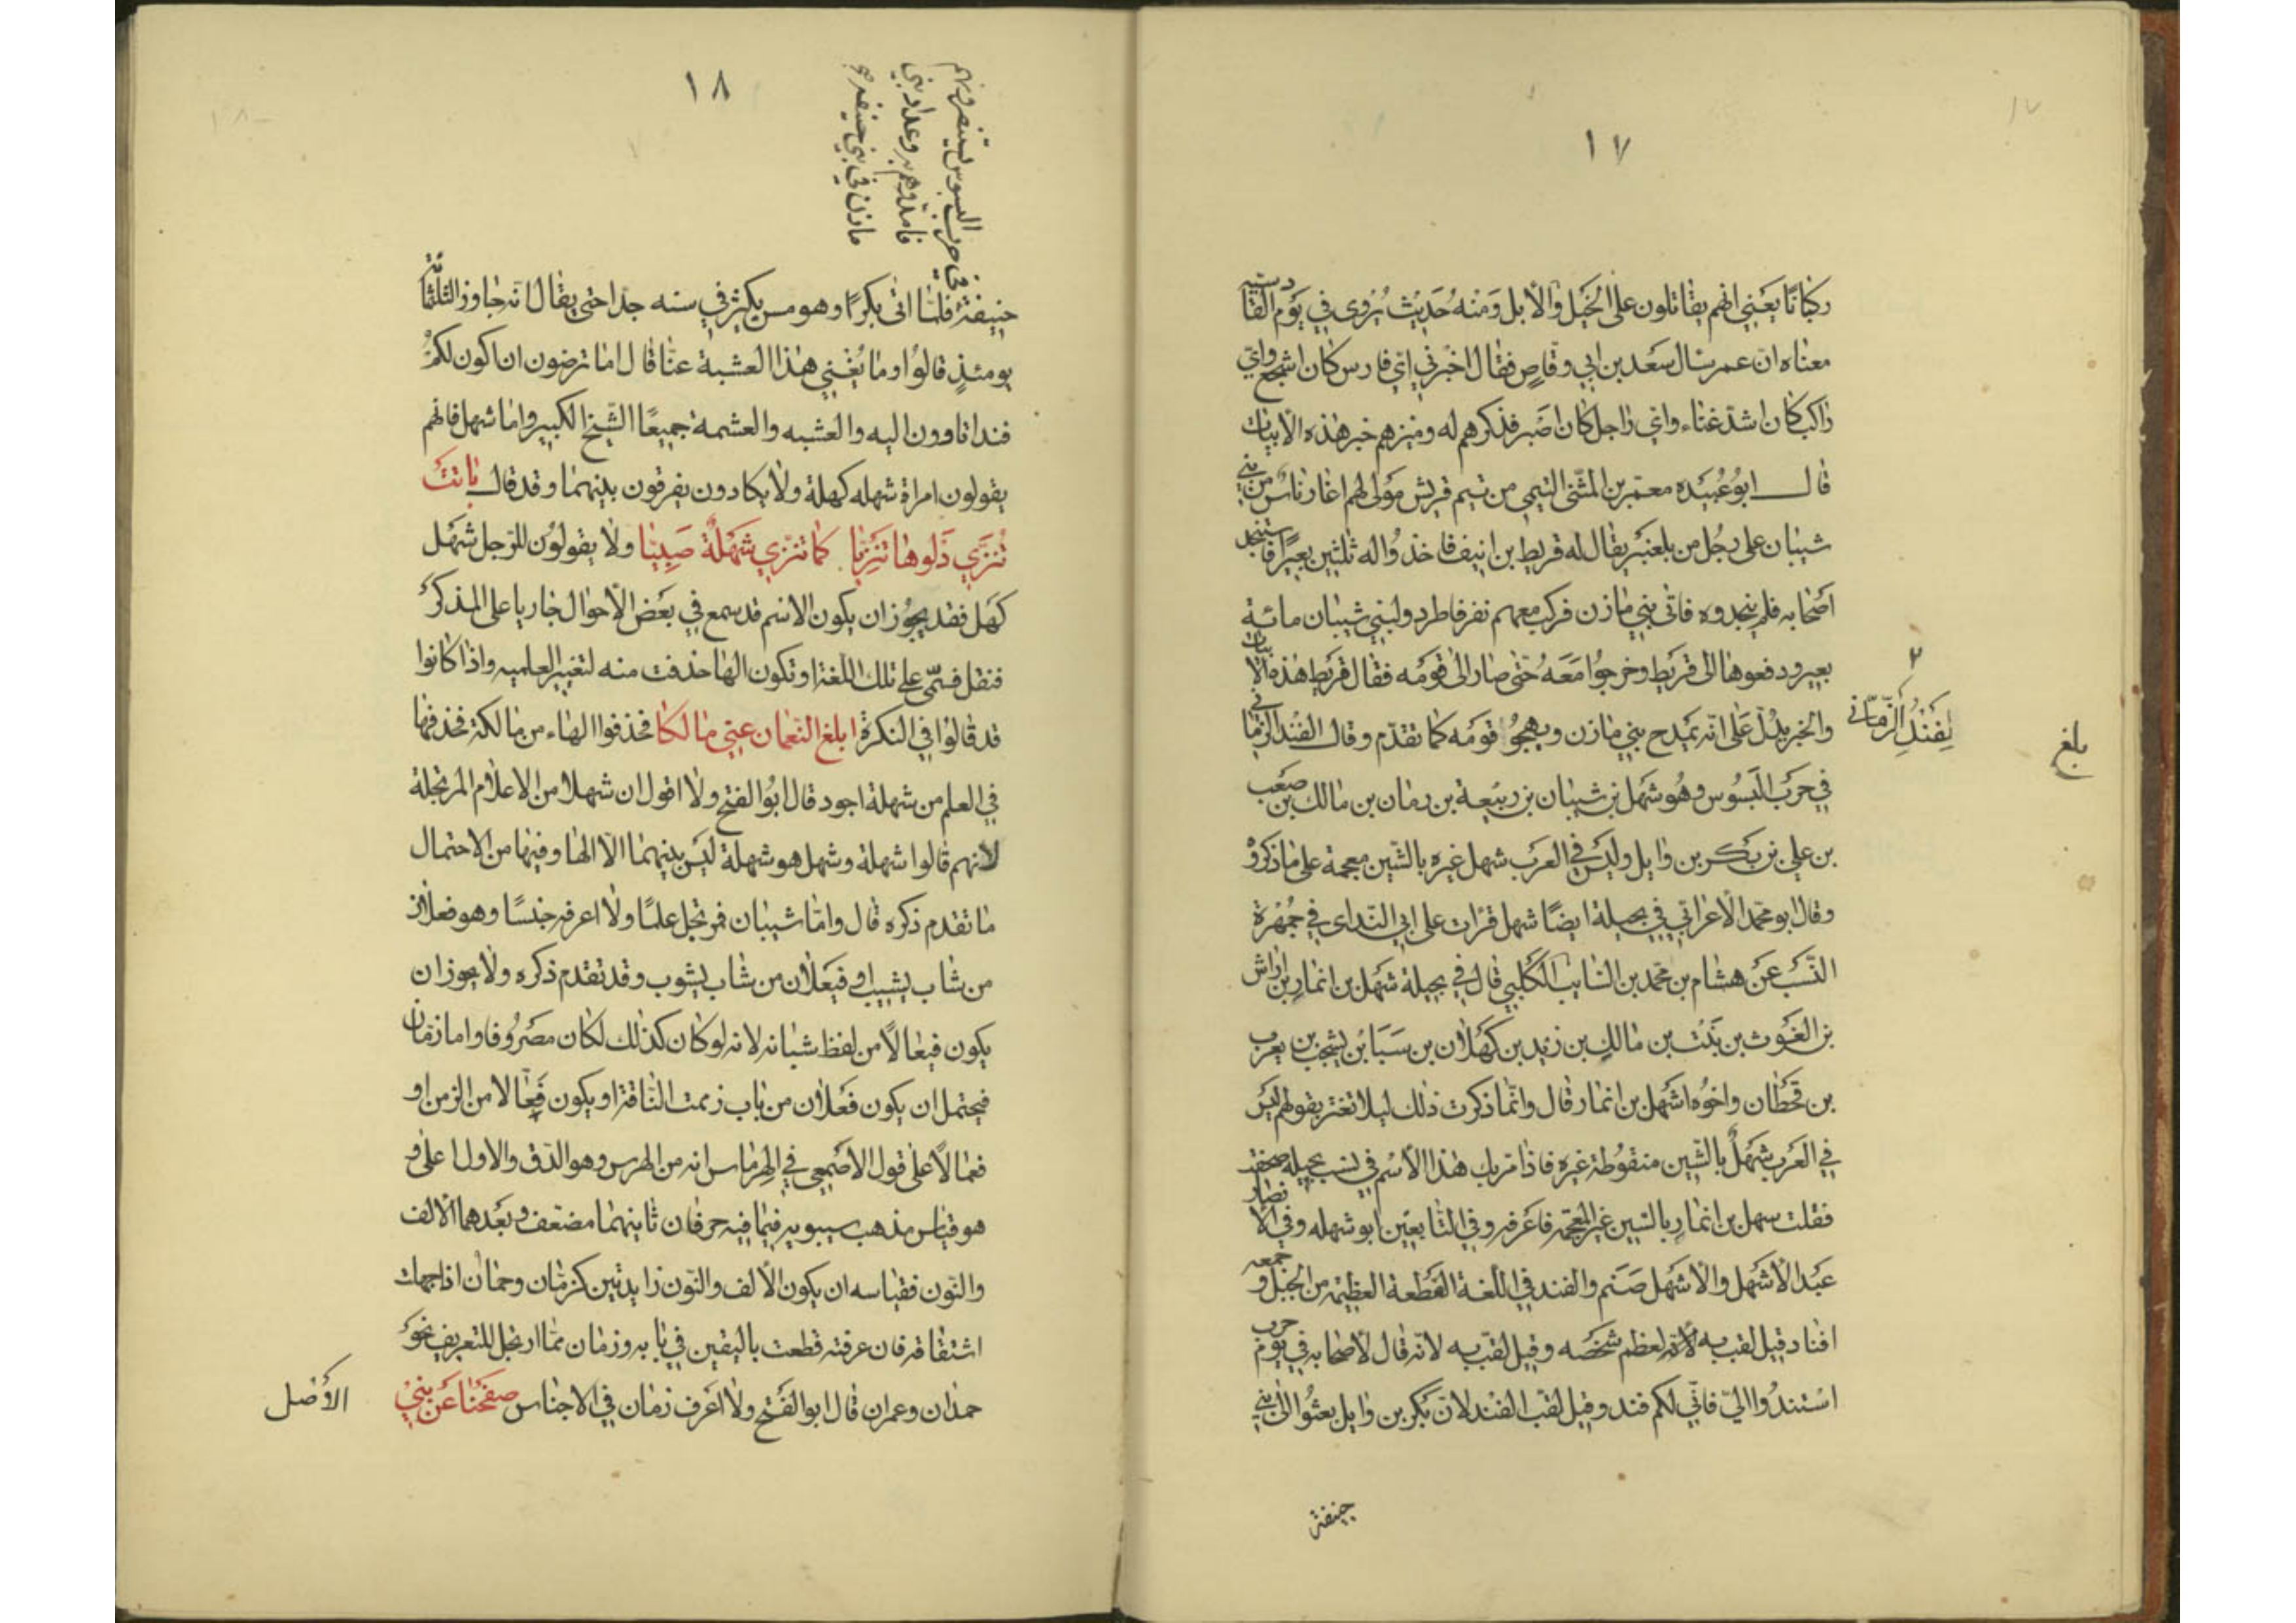 ١٧
ركبانا يعني انهم يقاتلون على الخيل والابل ومنه حديث يروى في يوم القادسيه
معناه ان عمر سال سعد بن ابي وقاص فقال اخبرني اي فارس كان اشجع واي
راكب كان اشد غناء واي راجل كان اصبر فذكرهم له وميزهم خبر هذه الابيات
قال ابو عبيده معمر بن المثنى التيمي من تيم قريش مولى لهم اغار ناس من بني
شيبان على رجل من بلعنبر يقال له قريط بن انيف فاخذوا له ثلثين بعيرا فاستنجد
اصحابه فلم ينجدوه فاتى بني مازن فركب معهم نفر فاطردوا لبني شيبان مائة
بعير ودفعوها الى قريط وخرجوا معه حتى صار الى قومه فقال قريط هذه الابيات
والخبر يدل على انه يمدح بني مازن ويهجو قومه كما تقدم وقال الفند الزماني
٢
لفند الزماني
بلغ
في حرب البسوس وهو شهل بن شيبان بن ربيعة بن زمان بن مالك بن صعب
بن علي بن بكر بن وايل وليس في العرب شهل غيره بالشين معجمة على ما ذكروا
وقال ابو محمد الاعرابي في بجيلة ايضا شهل قرات على ابي الندى في جمهرة
النسب عن هشام بن محمد بن السايب الكلبي قال في بجيلة شهل بن انمار بن اراش
بن الغوث بن نبت بن مالك بن زيد بن كهلان بن سبا بن يشجب بن يعرب
بن قحطان واخوه اشهل بن انمار قال وانما ذكرت ذلك ليلا تغتر بقولهم ليس
في العرب شهل بالشين منقوطة غيره فاذا مر بك هذا الاسم في نسب بجيلة صحفته
فقلت سهل بن انمار بالسين غير المعجمه فاعرفه وفي التابعين ابو شهله وفي الانصار
عبد الاشهل والاشهل صنم والفند في اللغة القطعة العظيمه من الجبل وجمعه
افناد قيل لقب به لانه لعظم شخصه وقيل لقب به لانه قال لاصحابه في يوم حرب
استندوا الي فاني لكم فند وقيل لقب الفند لان بكر بن وايل بعثوا الى بني
حنيفة
١٨
في حرب البسوس يستنصرونهم
فامدوهم به وعداد بني
مازن في بني حنيفه
حنيفة فلما اتى بكرا وهو مسن يكثر في سنه جدا حتى يقال انه جاوز الثلثمائة
يومئذ قالوا وما يغني هذا العشبة عنا قال اما ترضون ان اكون لكم
فندا تاوون اليه والعشبه والعشمة جميعا الشيخ الكبير واما شهل فانهم
يقولون امراة شهله كهلة ولا يكادون يفرقون بينهما وقد قال باتت
تنزي دلوها تنزيا كما تنزي شهلة صبيا ولا يقولون للرجل شهل
كهل فقد يجوز ان يكون الاسم قد سمع في بعض الاحوال جاريا على المذكر
فنقل فسمي على تلك اللغة او تكون الها حذفت منه لتغيير العلميه واذا كانوا
قد قالوا في النكرة ابلغ النعمان عني مالكا فحذفوا الهاء من مالكة فحذفها
في العلم من شهلة اجود قال ابو الفتح ولا اقول ان شهلا من الاعلام المرتجلة
لانهم قالوا شهلة وشهل هو شهلة ليس بينهما الا الها وفيها من الاحتمال
ما تقدم ذكره قال واما شيبان فمرتجل علما ولا اعرفه جنسا وهو فعلان
من شاب يشيب او فيعلان من شاب يشوب وقد تقدم ذكره ولا يجوز ان
يكون فيعالا من لفظ شبانه لانه لو كان كذلك لكان مصروفا واما زمان
فيحتمل ان يكون فعلان من باب زممت الناقة او يكون فعالا من الزمن او
فعالا على قول الاصمعي في الهرماس انه من الهرس وهو الدق والاول اعلى و
هو قياس مذهب سيبويه فيما فيه حرفان ثانيهما مضعف وبعدهما الالف
والنون فقياسه ان يكون الالف والنون زايدتين كزمان وحمان اذا جهلت
اشتقاقه فان عرفته قطعت باليقين في بابه وزمان مما ارتجل للتعريف نحو
حمدان وعمران قال ابو الفتح ولا اعرف زمان في الاجناس صفحنا عن بني
الاصل